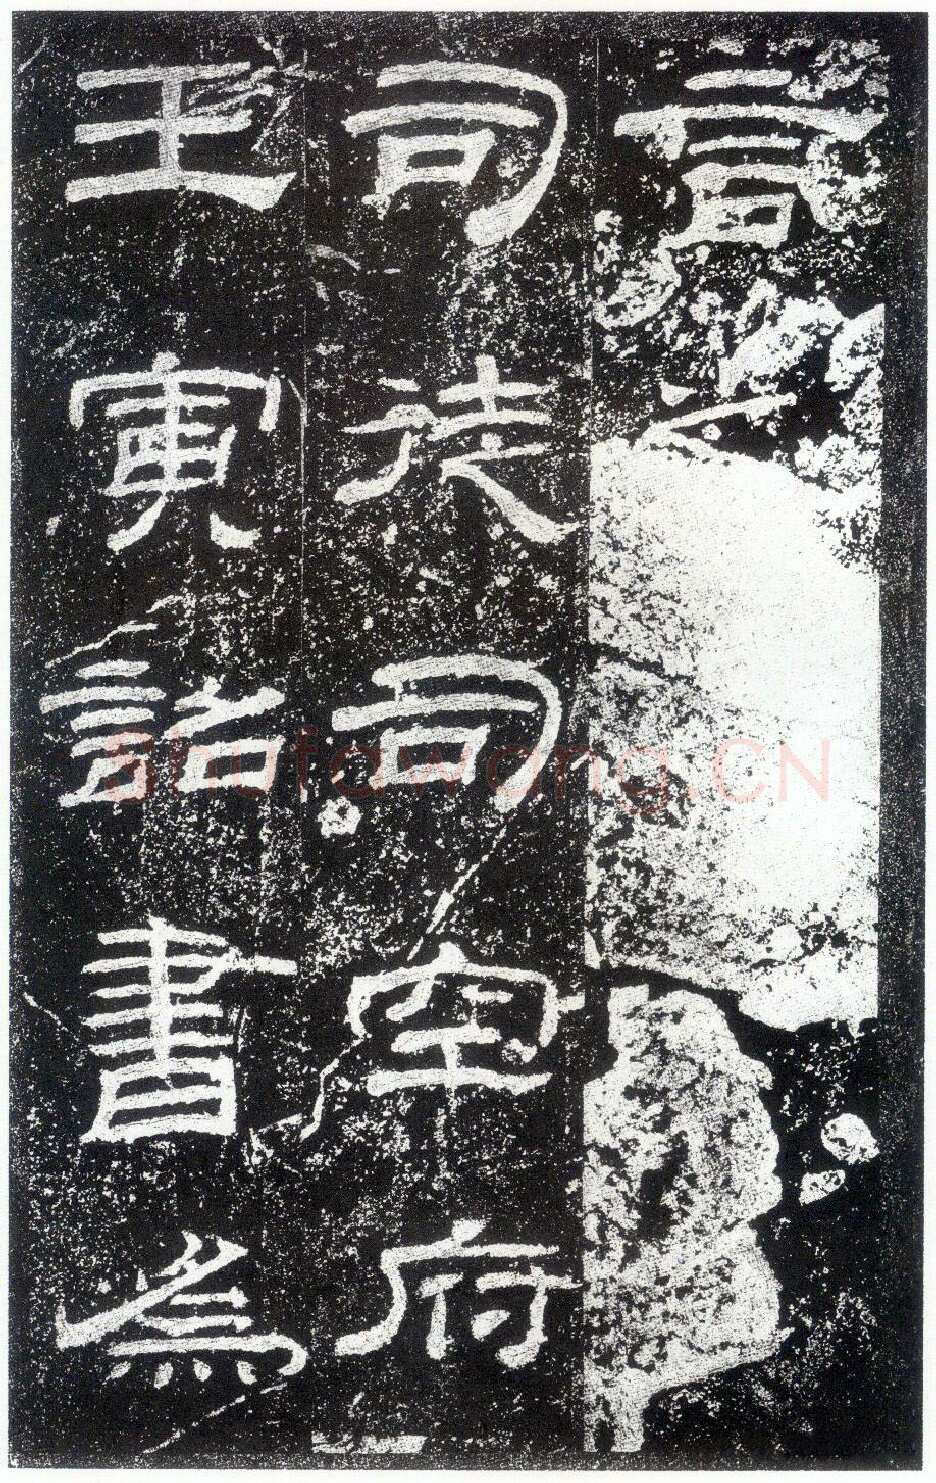 言之
司徒司空府
壬寅詔書為
Shufawang.CN